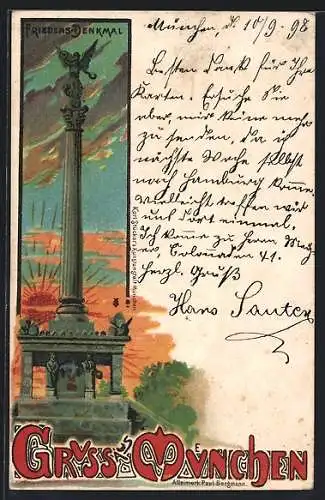 FRIEDENS-DENKMAL
München, d. 10/9. 98
Besten Dank für Ihre
Karten. Ersuche Sie
aber, mir keine mehr
zu senden, da ich
nächste Woche selbst
nach Hamburg komme.
Vielleicht treffen wir
uns dort einmal.
Ich komme zu Herrn
Colonnaden 41.
Herzl. Gruß
Hans Sauter
GRUSS AUS MÜNCHEN
Alleinverk. Paul Bergmann.